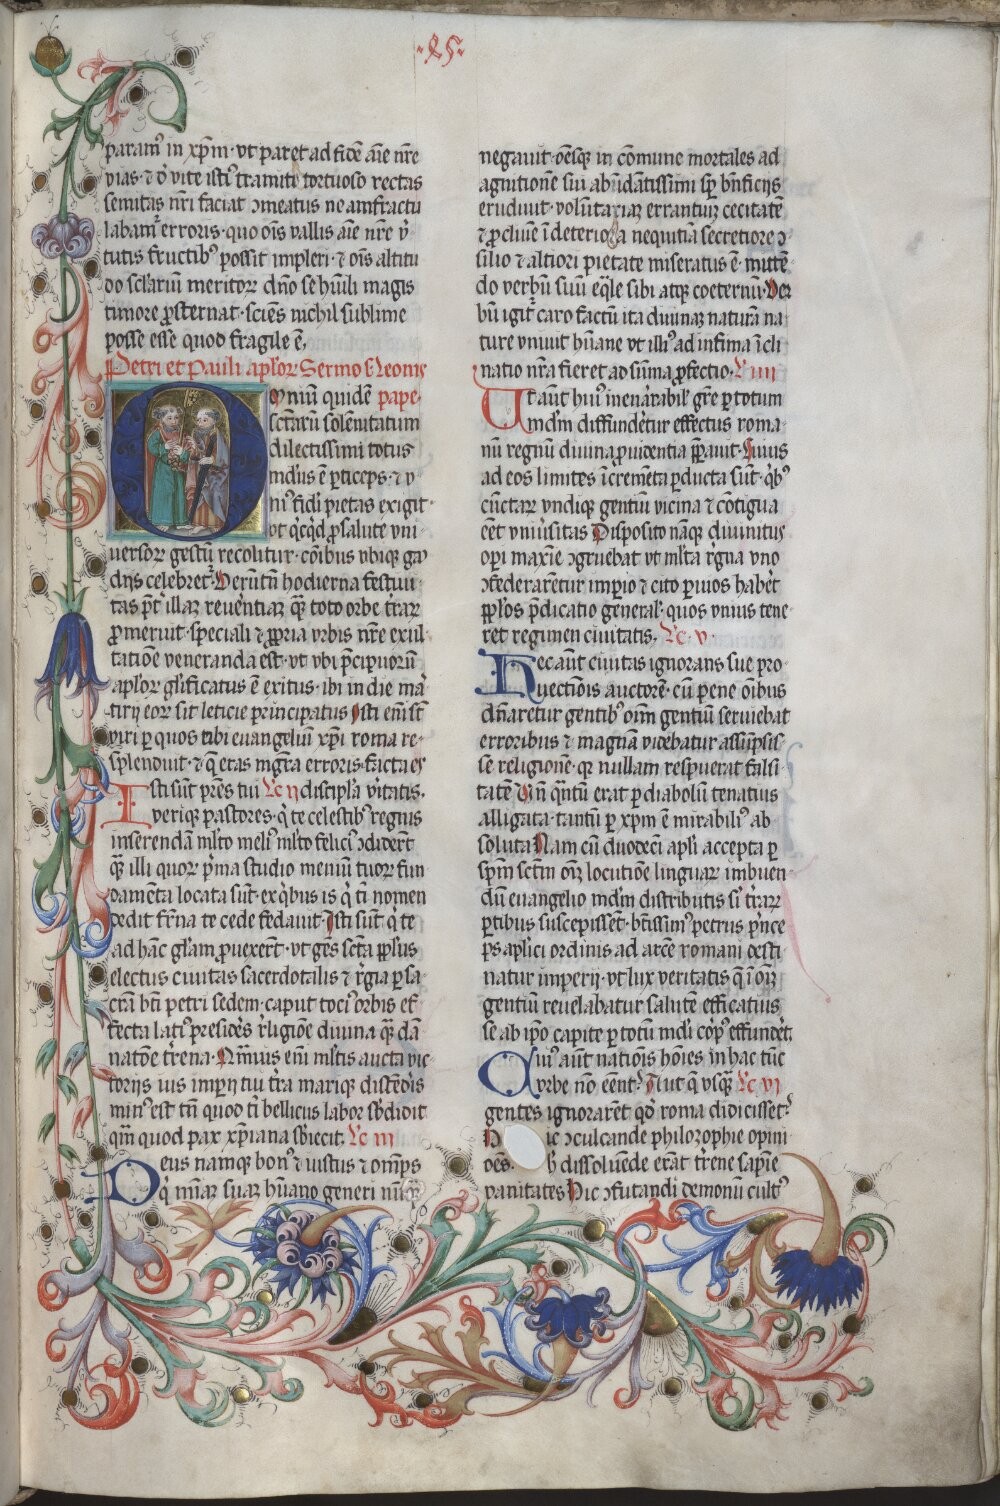 ·85·
param᷒ in xp̄m · vt paret ad fidē aīe nr̄e
vias · ⁊ d̓ vite isti᷒ tramite tortuoso rectas
semitas nr̄i faciat ꝯmeatus ne amfractu
labam᷑ erroris · quo oīs vallis aīe nr̄e v̓
tutis fructib᷒ possit impleri · ⁊ oīs altitu
do sclāriū meritoꝝ dn̄o se hūili magis
timore ꝓsternat · sciēs nichil sublime
posse esse quod fragile ē.
Petri et Pauli ap̄loꝝ Sermo s̄ Leonis
Omniū quidē pape ·
sctārū solēnitatum
dilectissimi totus
mūdus ē ꝑticeps · ⁊ v
ni᷒ fidī pietas exigit
vt qͥcqͥd ꝓ salute vni
uersoꝝ gestū recolitur · cōībus vbiqꝫ gau
diis celebret᷑ · Verūtn̄ hodierna festiui
tas p̄t̓ illaꝫ reuēntiaꝫ quā toto orbe t̓raꝝ
ꝓmeruit · speciali ⁊ ꝓpria vrbis nr̄e exul
tatiōe veneranda est · vt vbi p̄cipuorū
ap̄loꝝ gl̓ificatus ē exitus · ibi in die mar
tirij eoꝝ sit leticie principatus Isti em̄ st̄
viri ꝑ quos tibi euangeliū xp̄i roma re
splenduit · ⁊ q̄ eras mgr̄a erroris · facta es
Isti sūt pr̄es tui Lc̄ ij discipl̓a v̓itatis.
verīqꝫ pastores · qͥ te celestib᷒ regnis
inserendā ml̓to meli᷒ ml̓to felici᷒ ꝯdiderūt
quā illi quoꝝ pͥma studio meniū tuoꝝ fun
damēta locata sūt · ex qͥbus is qͥ ti nomen
dedit fr̄na te cede fedauit · Isti sūt qͥ te
ad hāc gl̄am ꝓuexerūt · vt gēs sctā ppl̓us
electus ciuitas sacerdotalis ⁊ r̓gia ꝑ sa
crā bt̄i petri sedem · caput toci᷒ orbis ef
fecta lati᷒ presidēs r̓ligiōe diuina quā dn̄a
natōe t̓rena · Quāuis em̄ ml̓tis aucta vic
torijs ius imperij tui t̓ra mariqꝫ discēd̓is
min᷒ est tn̄ quod ti bellicus labor sb̓didit
qm̄ quod pax xp̄iana sb̓iecit. Lc̄ iij
Deus namqꝫ bon᷒ ⁊ iustus ⁊ om̄ps
qͥ mīaꝫ suaꝫ hūano generi nūqͣꝫ
negauit · oēsqꝫ in cōmune mortales ad
agnitionē sui abūdātissimi sp̄ bn̄ficijs
erudiuit · volūtariaꝫ errantiuꝫ cecitatē
⁊ ꝓcliuē ī deteriora nequitiā secretiore ꝯ
silio ⁊ altiori pietate miseratus ē · mittē
do verbū suū eqͣle sibi atqꝫ coeternū · Ver
bū igit᷑ caro factū ita diuinaꝫ naturā na
ture vniuit hūane vt illi᷒ ad infima īcli
natio nr̄a fieret ad sūma ꝓfectio · Lc̄ iiij
Ut aūt hui᷒ inenārabil̓ gr̄e ꝑ totum
mūdm̄ diffundēretur effectus roma
nū regnū diuina ꝓuidentia p̄parauit · Cuius
ad eos limites īcremēta ꝑducta sūt · qͥb᷒
cūctaꝝ vndiqꝫ gentiū vicina ⁊ cōtigua
eēt vniuersitas Disposito nāqꝫ diuinitus
opi maxīe ꝯgruebat vt ml̓ta r̓gna vno
ꝯfederarētur imꝑio ⁊ cito ꝑuios habēret
ppl̓os p̄dicatio general̓ · quos vnius tene
ret regimen ciuitatis. Lc̄ v ·
Hec aūt ciuitas ignorans sue pro
uectiōis auctorē · cū pene oībus
dn̄aretur gentib᷒ oīm gentiū seruiebat
erroribus ⁊ magnā videbatur assūpsis
se religionē · qꝛ nullam respuerat falsi
tatē Vn̄ qn̄tū erat ꝑ diabolū tenatius
alligata · tantū ꝑ xp̄m ē mirabili᷒ ab
soluta Nam cū duodeci ap̄li accepta ꝑ
sp̄m sctm̄ oīm locutiōe linguaꝝ imbuen
dū euangelio mūdm̄ distributis si̓ t̓raꝝ
ꝑtibus suscepissēt · bt̄issim᷒ petrus pͥnce
ps ap̄lici ordinis ad arcē romani desti
natur imperij · vt lux veritatis q̄ ī oīꝫ
gentiū reuelabatur salutē efficatius
se ab ip̄o capite ꝑ totū mūdi corp᷒ effundēt
Cui᷒ aūt natiōis hoīes in hac tūc
vrbe nō eēnt? Aut que vsqꝫ Lc̄ vj
gentes ignorarēt qd̓ roma didicisset?
Hic ꝯculcande philozophie opini
oēs. h̓ dissoluēde erāt t̓rene sapīe
vanitates Hic ꝯfutandi demonū cult᷒